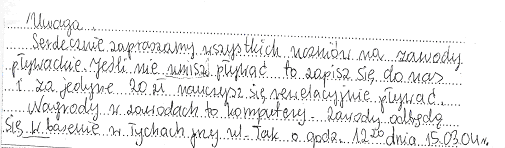 Uwaga.
Serdecznie zapraszamy wszystkich uczniów na zawody
pływackie. Jeśli nie umisz pływać to zapisz się do nas
i za jedyne 20 zł nauczysz się rewelacyjnie pływać.
Nagrody w zawodach to komputery. Zawody odbędą
się w basenie w Tychach przy ul. Tak o godz. 12 00 dnia 15.03.04r.